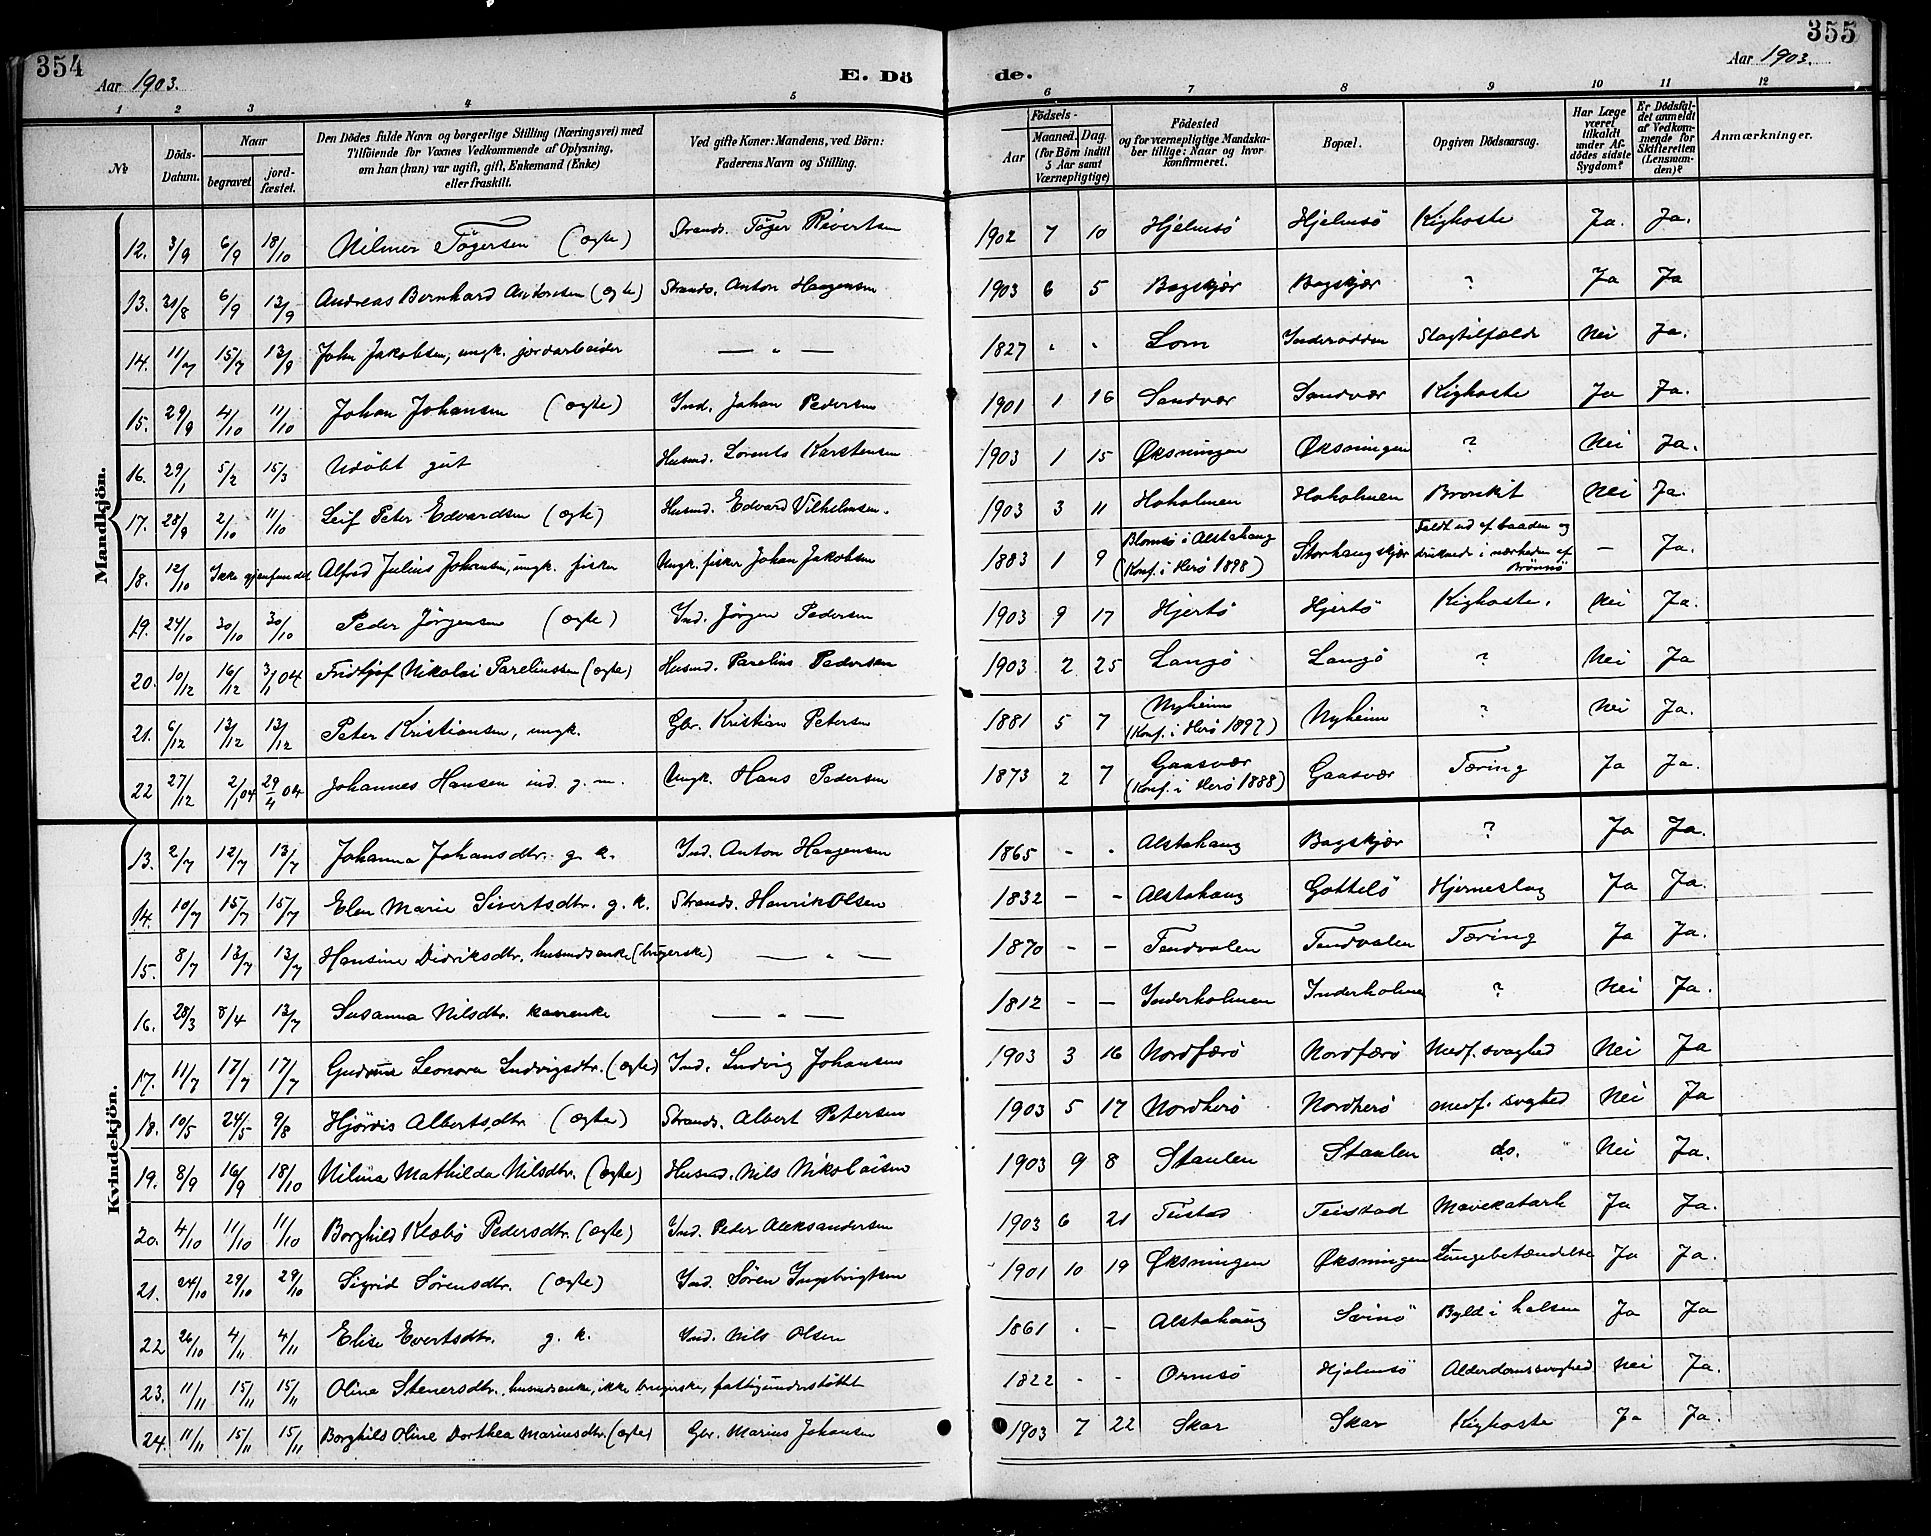 354
355
Aar 1903.
E. Dö
de.
Aar 1903.
1 2 3 4 5 6 7 8 9 10 11 12
No
Döds-Datum.
Naar
begravet
jordfæstet.
Den Dödes fulde Navn og borgerlige Stilling (Næringsvei) med
Tilföiende for Voxnes Vedkommende af Oplysning,
om han (hun) var ugift, gift, Enkemand (Enke)
eller fraskilt.
Ved gifte Koner: Mandens, ved Börn:
Faderens Navn og Stilling.
Födsels-
Aar
Maaned. Dag.
(for Börn indtil
5 Aar samt
Værnepligtige)
Födested
og for værnepligtige Mandska-
ber tillige: Naar og hvor
konfirmeret.
Bopæl.
Opgiven Dödsaarsag.
Har Læge
været
tilkaldt
under Af-
dödes sidste
Sygdom?
Er Dödsfal-
det anmeldt
af Vedkom-
mende for
Skifteretten
(Lensman-
den)?
Anmærkninger.
Mandkjön.
12. 3/9 6/9 18/10 Hilmer Tögersen (ægte) Strands. Töger Sivertsen 1902 7 10 Hjelmsö Hjelmsö Kighoste Ja. Ja.
13. 31/8 6/9 13/9 Andreas Bernhard Antonsen (ægte) Strands. Anton Haagensen 1903 6 5 Bogskjær Bogskjær ? Ja Ja
14. 11/7 15/7 13/9 John Jakobsen, ungk. jordarbeider — " — 1827 " " Lom Inderodden Slagtilfælde Nei Ja.
15. 29/9 4/10 11/10 Johan Johansen (ægte) Ind. Johan Pedersen 1901 1 16 Sandvær Sandvær Kighoste Ja Ja.
16. 29/1 5/2 15/3 Udöbt gut Husmd. Lorents Karstensen 1903 1 15 Øksningen Øksningen ? Nei Ja.
17. 28/9 2/10 11/10 Leif Peter Edvardsen (ægte) Husmd. Edvard Vilhelmsen. 1903 3 11 Hoholmen Hoholmen Bronkit Nei Ja.
18. 12/10 Ikke gjenfundet Alfred Julius Johansen, ungk. fisker Ungk. fisker Johan Jakobsen 1883 1 9 Blomsö i Alstahaug (Konf. i Herö 1898) Storhaugskjær Faldt ud af baaden og druknede i nærheden af Brönnö — Ja.
19. 24/10 30/10 30/10 Peder Jörgensen (ægte) Ind. Jörgen Pedersen 1903 9 17 Hjertö Hjertö Kighoste. Nei Ja.
20. 10/12 16/12 3/1 04 Fridtjof Nikolai Pareliussen (ægte) Husmd. Parelius Pedersen 1903 2 25 Langö Langö ? Nei Ja
21. 6/12 13/12 13/12 Peter Kristiansen, ungk. Gbr. Kristian Petersen 1881 5 7 Nyheim (Konf. i Herö 1897) Nyheim ? Nei Ja.
22 27/12 2/1 04 29/4 04 Johannes Hansen ind. g. m. Ungk. Hans Pedersen 1873 2 7 Gaasvær (Konf. i Herö 1888) Gaasvær Tæring Ja Ja.
Kvindekjön.
13. 2/7 12/7 13/7 Johanna Johansdtr. g. k. Ind. Anton Haagensen 1865 - - Alstahaug Bogskjær ? Ja Ja.
14. 10/7 15/7 15/7 Elen Marie Sivertsdtr. g. k. Strands. Henrik Olsen 1832 - - Alstahaug Gottelö Hjerneslag Ja Ja.
15. 8/7 13/7 13/7 Hansine Didriksdtr. husmdsenke (brugerske) — " — 1870 - - Tendvalen Tendvalen Tæring Ja Ja.
16. 28/3 8/4 13/7 Susanna Nilsdtr. kaarenke — " — 1812 - - Inderholmen Inderholmen ? Nei Ja.
17. 11/7 17/7 17/7 Gudrun Leonora Ludvigsdtr. (ægte) Ind. Ludvig Johansen 1903 3 16 Nordfærö Nordfærö Medf. svaghed Nei Ja
18. 10/5 24/5 9/8 Hjördis Albertsdtr (ægte) Strands. Albert Petersen 1903 5 17 Nordherö Nordherö medf. svaghed Nei Ja
19. 8/9 16/9 18/10 Nilina Mathilda Nilsdtr. (ægte) Husmd. Nils Nikolaisen 1903 9 8 Staulen Staulen do. " Nei Ja.
20. 4/10 11/10 11/10 Borghild Klæbö Pedersdtr. (ægte) Ind. Peder Aleksandersen 1903 6 21 Teistad Teistad Mavekatarh Ja Ja.
21. 24/10 29/10 29/10 Sigrid Sörensdtr. (ægte) Ind. Sören Ingebrigtsen 1901 10 19 Øksningen Øksningen Lungebetændelse Ja Ja.
22 26/10 4/11 4/11 Elise Evertsdtr. g. k. Ind. Nils Olsen 1861 - - Alstahaug Svinö Byld i halsen Ja Ja
23. 11/11 15/11 15/11 Oline Stenersdtr. husmdsenke, ikke brugerske, fattigunderstöttet 1822 - - Ormsö Hjelmsö Alderdomssvaghed Nei Ja.
24. 11/11 15/11 15/11 Borghild Oline Dorthea Mariusdtr. (ægte) Gbr. Marius Johansen 1903 7 22 Skar Skar Kighoste Ja Ja.